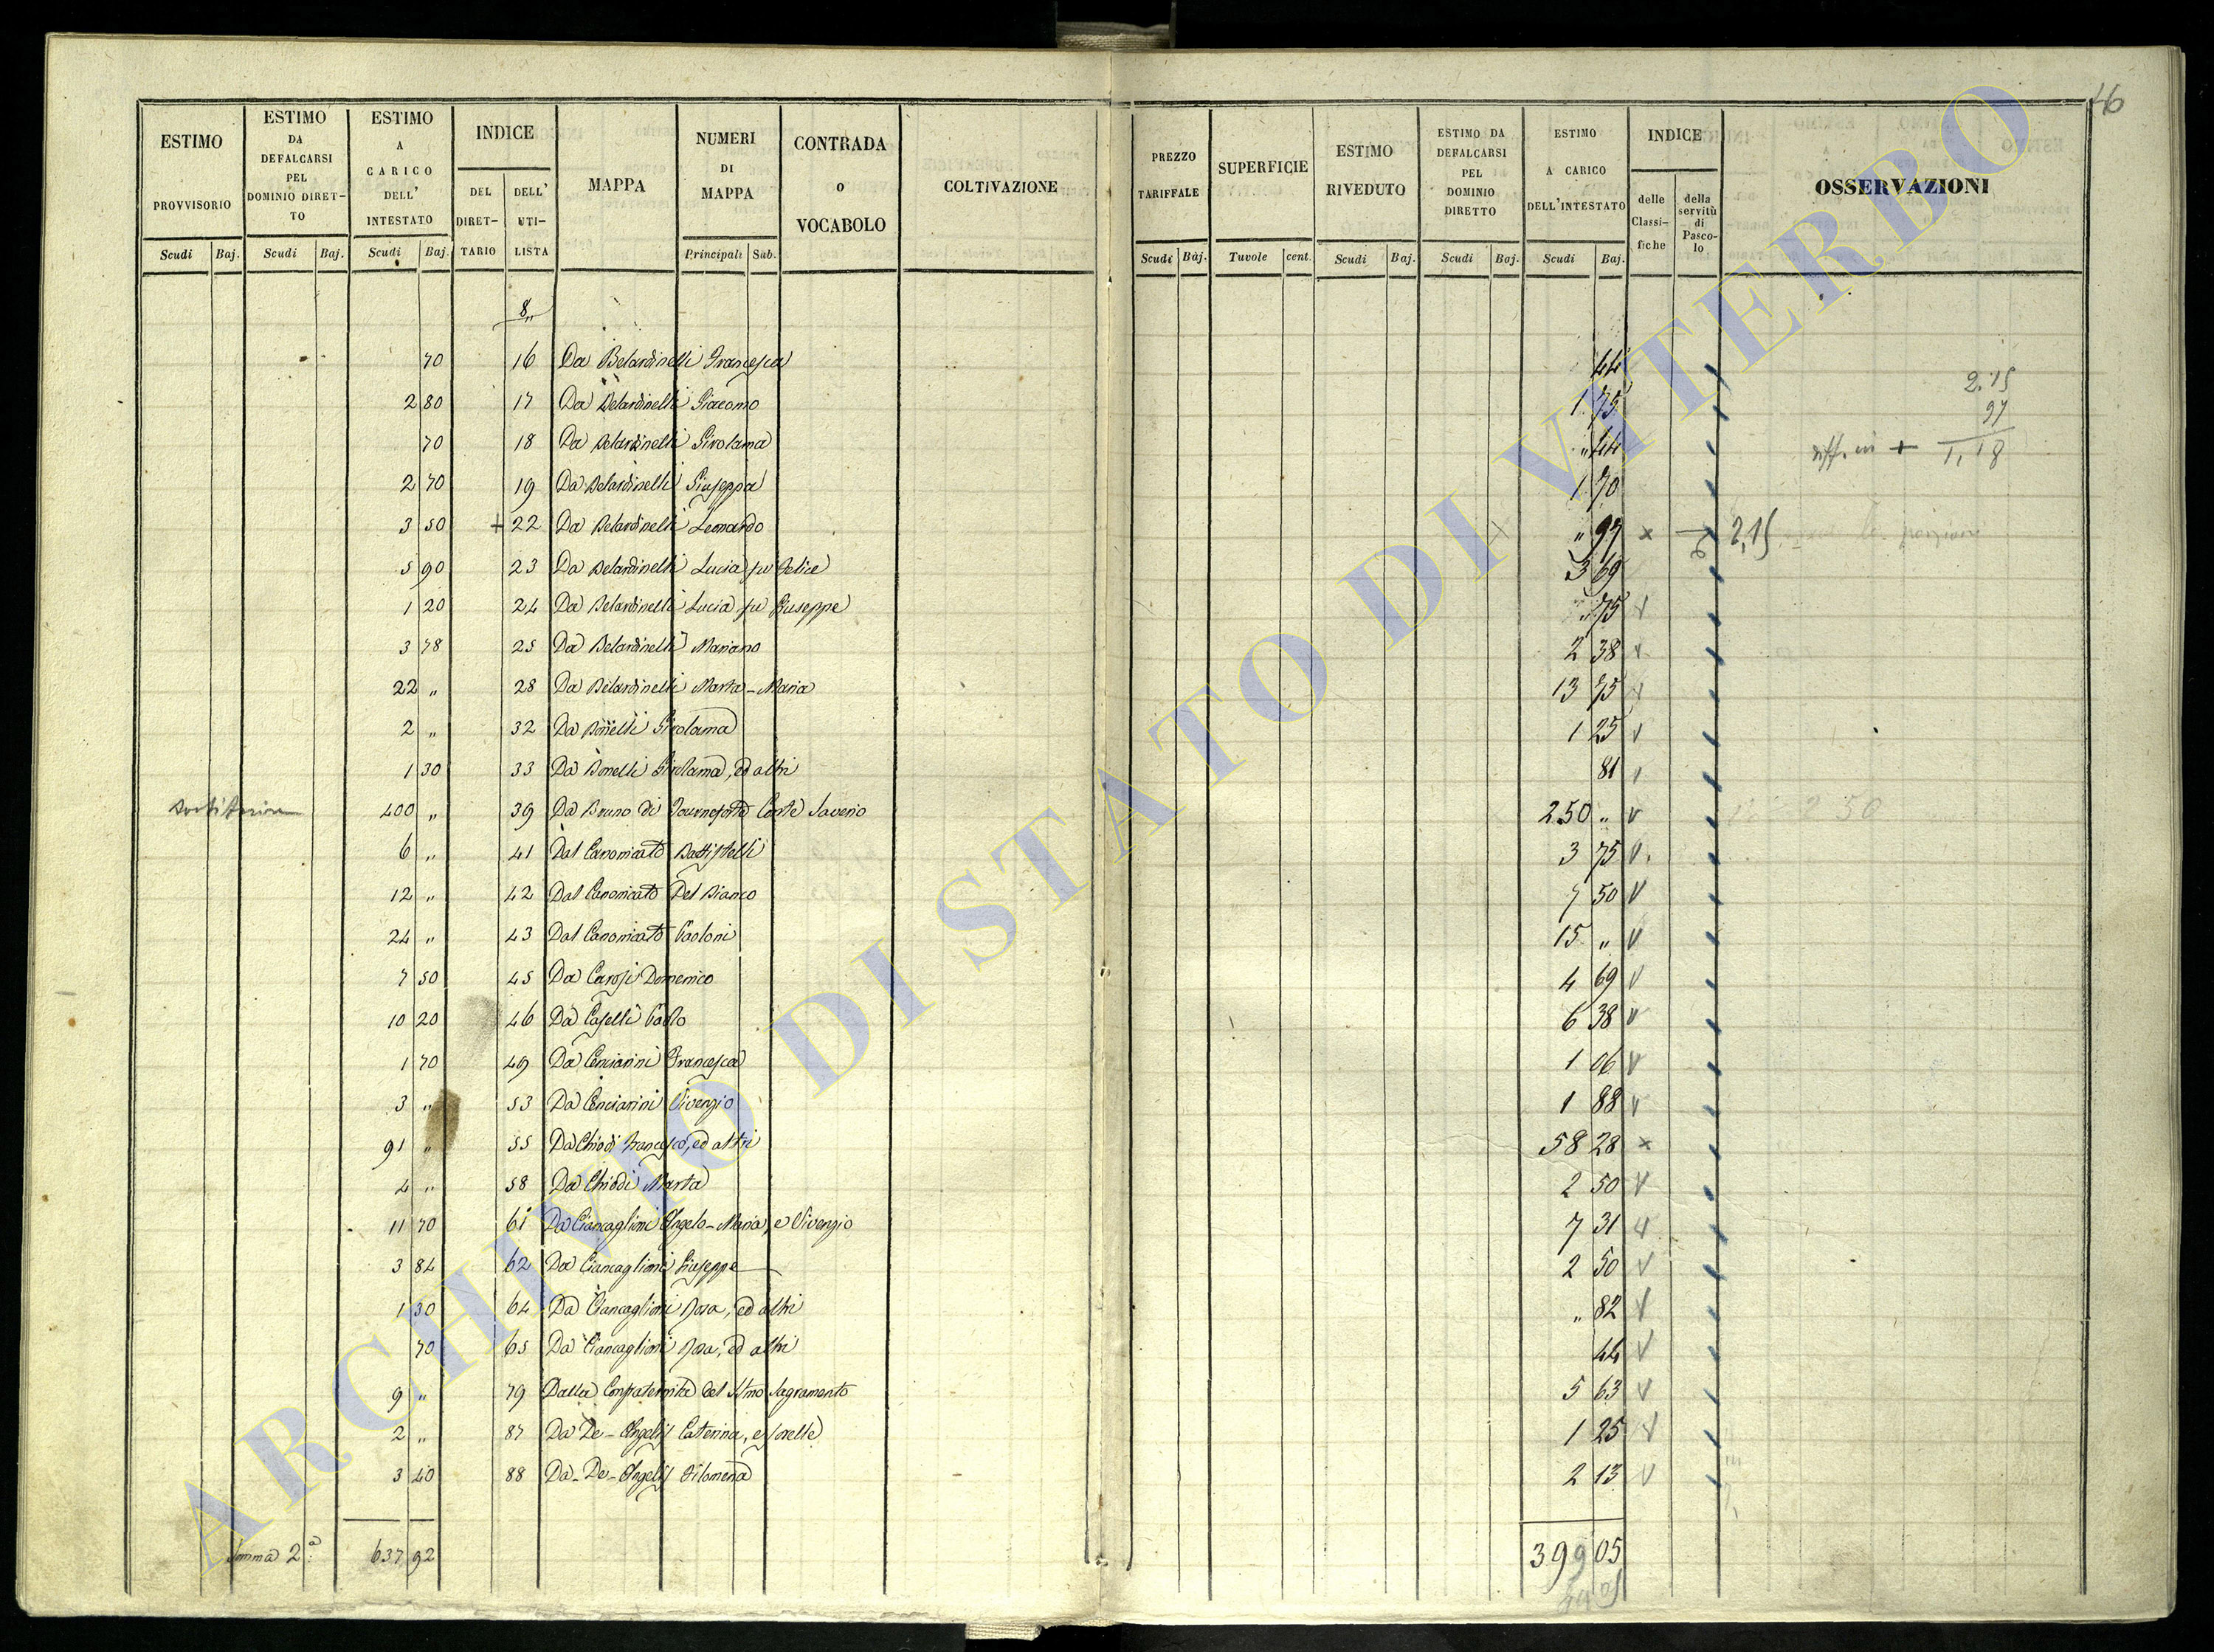 46
ESTIMO PROVVISORIO | ESTIMO DA DEFALCARSI PEL DOMINIO DIRETTO | ESTIMO A CARICO DELL' INTESTATO | INDICE DEL DIRETTARIO | DELL' UTILISTA | MAPPA | NUMERI DI MAPPA | CONTRADA o VOCABOLO | COLTIVAZIONE | PREZZO TARIFFALE | SUPERFICIE | ESTIMO RIVEDUTO | ESTIMO DA DEFALCARSI PEL DOMINIO DIRETTO | ESTIMO A CARICO DELL'INTESTATO | INDICE delle Classifiche | della servitù di Pascolo | OSSERVAZIONI
Scudi | Baj. | Scudi | Baj. | Scudi | Baj. | Principali | Sub. | Scudi | Baj. | Tavole | cent. | Scudi | Baj. | Scudi | Baj. | Scudi | Baj.
8„
70 16 Da Belardinelli Francesca 44
2 80 17 Da Belardinelli Giacomo 1 75 2.15
70 18 Da Belardinelli Girolama „ 44 97
diff. in + 1,18
2 70 19 Da Belardinelli Giuseppa 1 70
3 50 + 22 Da Belardinelli Leonardo „ 97 x 2,15
5 90 23 Da Belardinelli Lucia fu Felice 3 69
1 20 24 Da Belardinelli Lucia fu Giuseppe „ 75 V
3 78 25 Da Belardinelli Mariano 2 38 V
22 „ 28 Da Belardinelli Marta-Maria 13 75 V
2 „ 32 Da Bonelli Girolama 1 25 V
1 30 33 Da Bonelli Girolama, ed altri 81 V
400 „ 39 Da Bruno di Tourneforte Conte Saverio 250 „ V
6 „ 41 Dal Canonicato Battistelli 3 75 V.
12 „ 42 Dal Canonicato Del Bianco 7 50 V
24 „ 43 Dal Canonicato Paoloni 15 „ V
7 50 45 Da Carosi Domenico 4 69 V
10 20 46 Da Caselli Paolo 6 38 V
1 70 49 Da Cenciarini Francesca 1 06 V
3 „ 53 Da Cenciarini Vivenzio 1 88 V
91 „ 55 Da Chiodi Francesco, ed altri 58 28 x
4 „ 58 Da Chiodi Marta 2 50 V
11 70 61 Da Ciancaglioni Angelo-Maria, e Vivenzio 7 31 V
3 84 62 Da Ciancaglioni Giuseppe 2 50 V
1 30 64 Da Ciancaglioni Rosa, ed altri „ 82 V
70 65 Da Ciancaglioni Rosa, ed altri 44 V
9 „ 79 Dalla Confraternita del SSmo Sagramento 5 63 V
2 „ 87 Da De-Angelis Caterina, e sorelle 1 25 V
3 40 88 Da-De-Angelis Filomena 2 13 V
Somma 2ª 637 92 399 05
ARCHIVIO DI STATO DI VITERBO